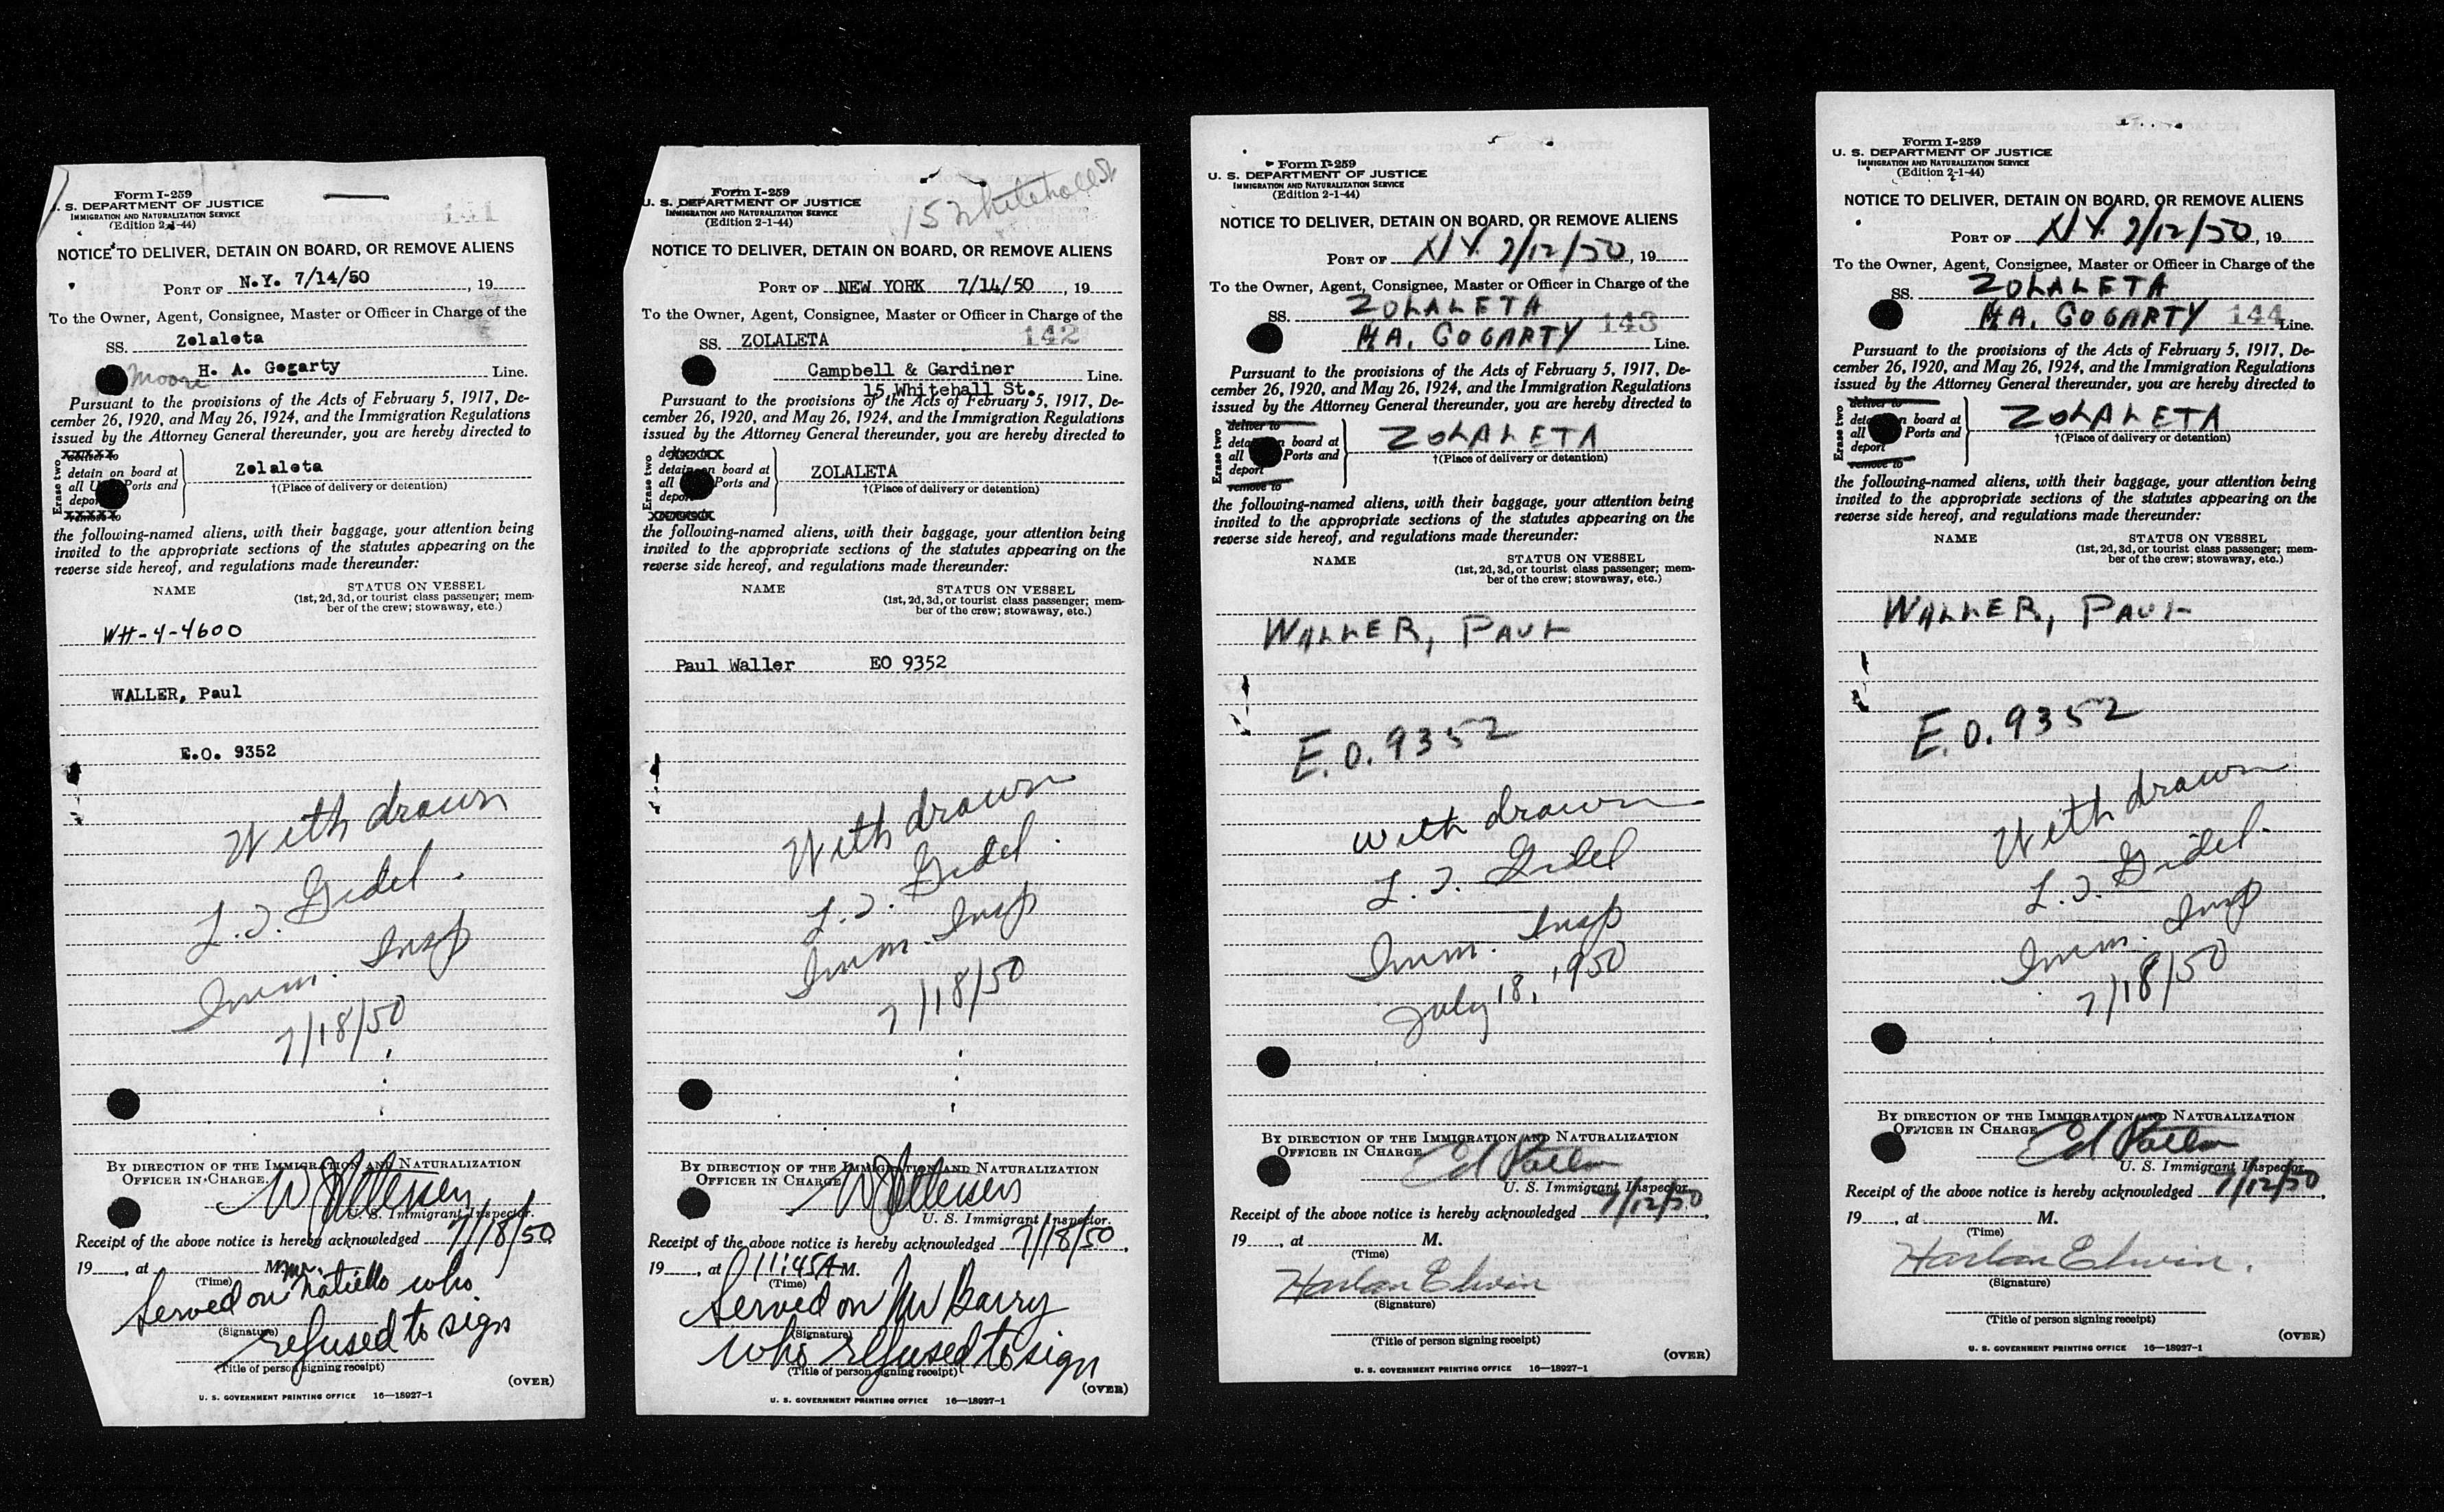 Form I-259
U. S. DEPARTMENT OF JUSTICE
IMMIGRATION AND NATURALIZATION SERVICE
(Edition 2-1-44)
141
NOTICE TO DELIVER, DETAIN ON BOARD, OR REMOVE ALIENS
PORT OF N.Y. 7/14/50, 19
To the Owner, Agent, Consignee, Master or Officer in Charge of the
SS. Zolaleta
Moore H. A. Gogarty Line.
Pursuant to the provisions of the Acts of February 5, 1917, De-
cember 26, 1920, and May 26, 1924, and the Immigration Regulations
issued by the Attorney General thereunder, you are hereby directed to
Erase two
deliver to
detain on board at
all U Ports and
depor
remove to
Zolaleta
†(Place of delivery or detention)
the following-named aliens, with their baggage, your attention being
invited to the appropriate sections of the statutes appearing on the
reverse side hereof, and regulations made thereunder:
NAME STATUS ON VESSEL
(1st, 2d, 3d, or tourist class passenger; mem-
ber of the crew; stowaway, etc.)
WH-4-4600
WALLER, Paul
E.O. 9352
With drawn
L. J. Gidel.
Imm. Insp
7/18/50
BY DIRECTION OF THE IMMIGRATION AND NATURALIZATION
OFFICER IN CHARGE.
U. S. Immigrant Inspector.
Receipt of the above notice is hereby acknowledged 7/18/50
19, at M.
(Time)
Served on Mr. Natiello who
(Signature)
refused to sign
(Title of person signing receipt)
(OVER)
U. S. GOVERNMENT PRINTING OFFICE 16—18927-1
Form I-259
U. S. DEPARTMENT OF JUSTICE
IMMIGRATION AND NATURALIZATION SERVICE
(Edition 2-1-44)
15 Whitehall St
NOTICE TO DELIVER, DETAIN ON BOARD, OR REMOVE ALIENS
PORT OF NEW YORK 7/14/50, 19
To the Owner, Agent, Consignee, Master or Officer in Charge of the
SS. ZOLALETA 142
Campbell & Gardiner Line.
15 Whitehall St.
Pursuant to the provisions of the Acts of February 5, 1917, De-
cember 26, 1920, and May 26, 1924, and the Immigration Regulations
issued by the Attorney General thereunder, you are hereby directed to
Erase two
detain on board at
all Ports and
depor
ZOLALETA
†(Place of delivery or detention)
the following-named aliens, with their baggage, your attention being
invited to the appropriate sections of the statutes appearing on the
reverse side hereof, and regulations made thereunder:
NAME STATUS ON VESSEL
(1st, 2d, 3d, or tourist class passenger; mem-
ber of the crew; stowaway, etc.)
Paul Waller EO 9352
With drawn
L. J. Gidel.
Imm. Insp
7/18/50
BY DIRECTION OF THE IMMIGRATION AND NATURALIZATION
OFFICER IN CHARGE
U. S. Immigrant Inspector.
Receipt of the above notice is hereby acknowledged 7/18/50,
19, at 11:45A M.
(Time)
Served on Mr Barry
(Signature)
who refused to sign
(Title of person signing receipt)
(OVER)
U. S. GOVERNMENT PRINTING OFFICE 16—18927-1
Form I-259
U. S. DEPARTMENT OF JUSTICE
IMMIGRATION AND NATURALIZATION SERVICE
(Edition 2-1-44)
NOTICE TO DELIVER, DETAIN ON BOARD, OR REMOVE ALIENS
PORT OF N.Y. 7/12/50, 19
To the Owner, Agent, Consignee, Master or Officer in Charge of the
SS. ZOLALETA
H.A. GOGARTY 143 Line.
Pursuant to the provisions of the Acts of February 5, 1917, De-
cember 26, 1920, and May 26, 1924, and the Immigration Regulations
issued by the Attorney General thereunder, you are hereby directed to
Erase two
deliver to
deta n board at
all Ports and
deport
remove to
ZOLALETA
†(Place of delivery or detention)
the following-named aliens, with their baggage, your attention being
invited to the appropriate sections of the statutes appearing on the
reverse side hereof, and regulations made thereunder:
NAME STATUS ON VESSEL
(1st, 2d, 3d, or tourist class passenger; mem-
ber of the crew; stowaway, etc.)
WALLER, PAUL
E.O. 9352
With drawn
L. J. Gidel
Imm. Insp
July 18, 1950
BY DIRECTION OF THE IMMIGRATION AND NATURALIZATION
OFFICER IN CHARGE
U. S. Immigrant Inspector.
Receipt of the above notice is hereby acknowledged 7/12/50,
19, at M.
(Time)
Harlan Elwin
(Signature)
(Title of person signing receipt)
(OVER)
U. S. GOVERNMENT PRINTING OFFICE 16—18927-1
Form I-259
U. S. DEPARTMENT OF JUSTICE
IMMIGRATION AND NATURALIZATION SERVICE
(Edition 2-1-44)
NOTICE TO DELIVER, DETAIN ON BOARD, OR REMOVE ALIENS
PORT OF N.Y. 7/12/50, 19
To the Owner, Agent, Consignee, Master or Officer in Charge of the
SS. ZOLALETA
H.A. GOGARTY 144 Line.
Pursuant to the provisions of the Acts of February 5, 1917, De-
cember 26, 1920, and May 26, 1924, and the Immigration Regulations
issued by the Attorney General thereunder, you are hereby directed to
Erase two
deliver to
deta n board at
all Ports and
deport
remove to
ZOLALETA
†(Place of delivery or detention)
the following-named aliens, with their baggage, your attention being
invited to the appropriate sections of the statutes appearing on the
reverse side hereof, and regulations made thereunder:
NAME STATUS ON VESSEL
(1st, 2d, 3d, or tourist class passenger; mem-
ber of the crew; stowaway, etc.)
WALLER, PAUL
E.O. 9352
With drawn
L. J. Gidel.
Imm. Insp
7/18/50
BY DIRECTION OF THE IMMIGRATION AND NATURALIZATION
OFFICER IN CHARGE
U. S. Immigrant Inspector
Receipt of the above notice is hereby acknowledged 7/12/50,
19, at M.
(Time)
Harlan Elwin.
(Signature)
(Title of person signing receipt)
(OVER)
U. S. GOVERNMENT PRINTING OFFICE 16—18927-1